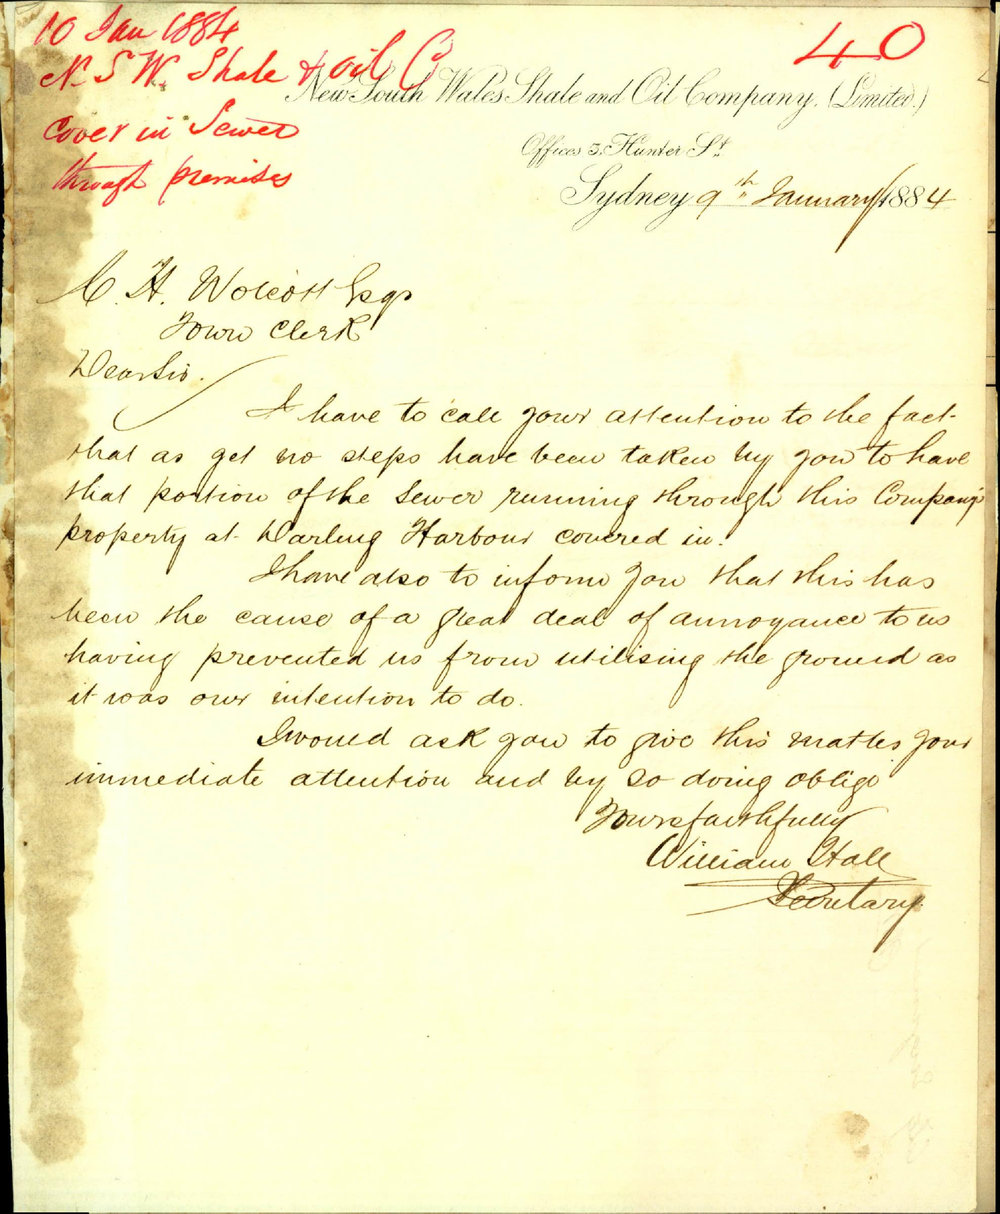 10 Jan 1884
N. S W. Shale & Oil Co
cover in Sewer
through premises
40
New South Wales Shale and Oil Company. (Limited.)
Offices 3. Hunter St.
Sydney 9th January 1884
C. H. Wolcott Esqr
Town Clerk
Dear Sir.
I have to call your attention to the fact
that as yet no steps have been taken by you to have
that portion of the Sewer running through this Company's
property at Darling Harbour covered in.
I have also to inform you that this has
been the cause of a great deal of annoyance to us
having prevented us from utilising the ground as
it was our intention to do.
I would ask you to give this matter your
immediate attention and by so doing oblige
Yours faithfully
William Hall
Secretary.